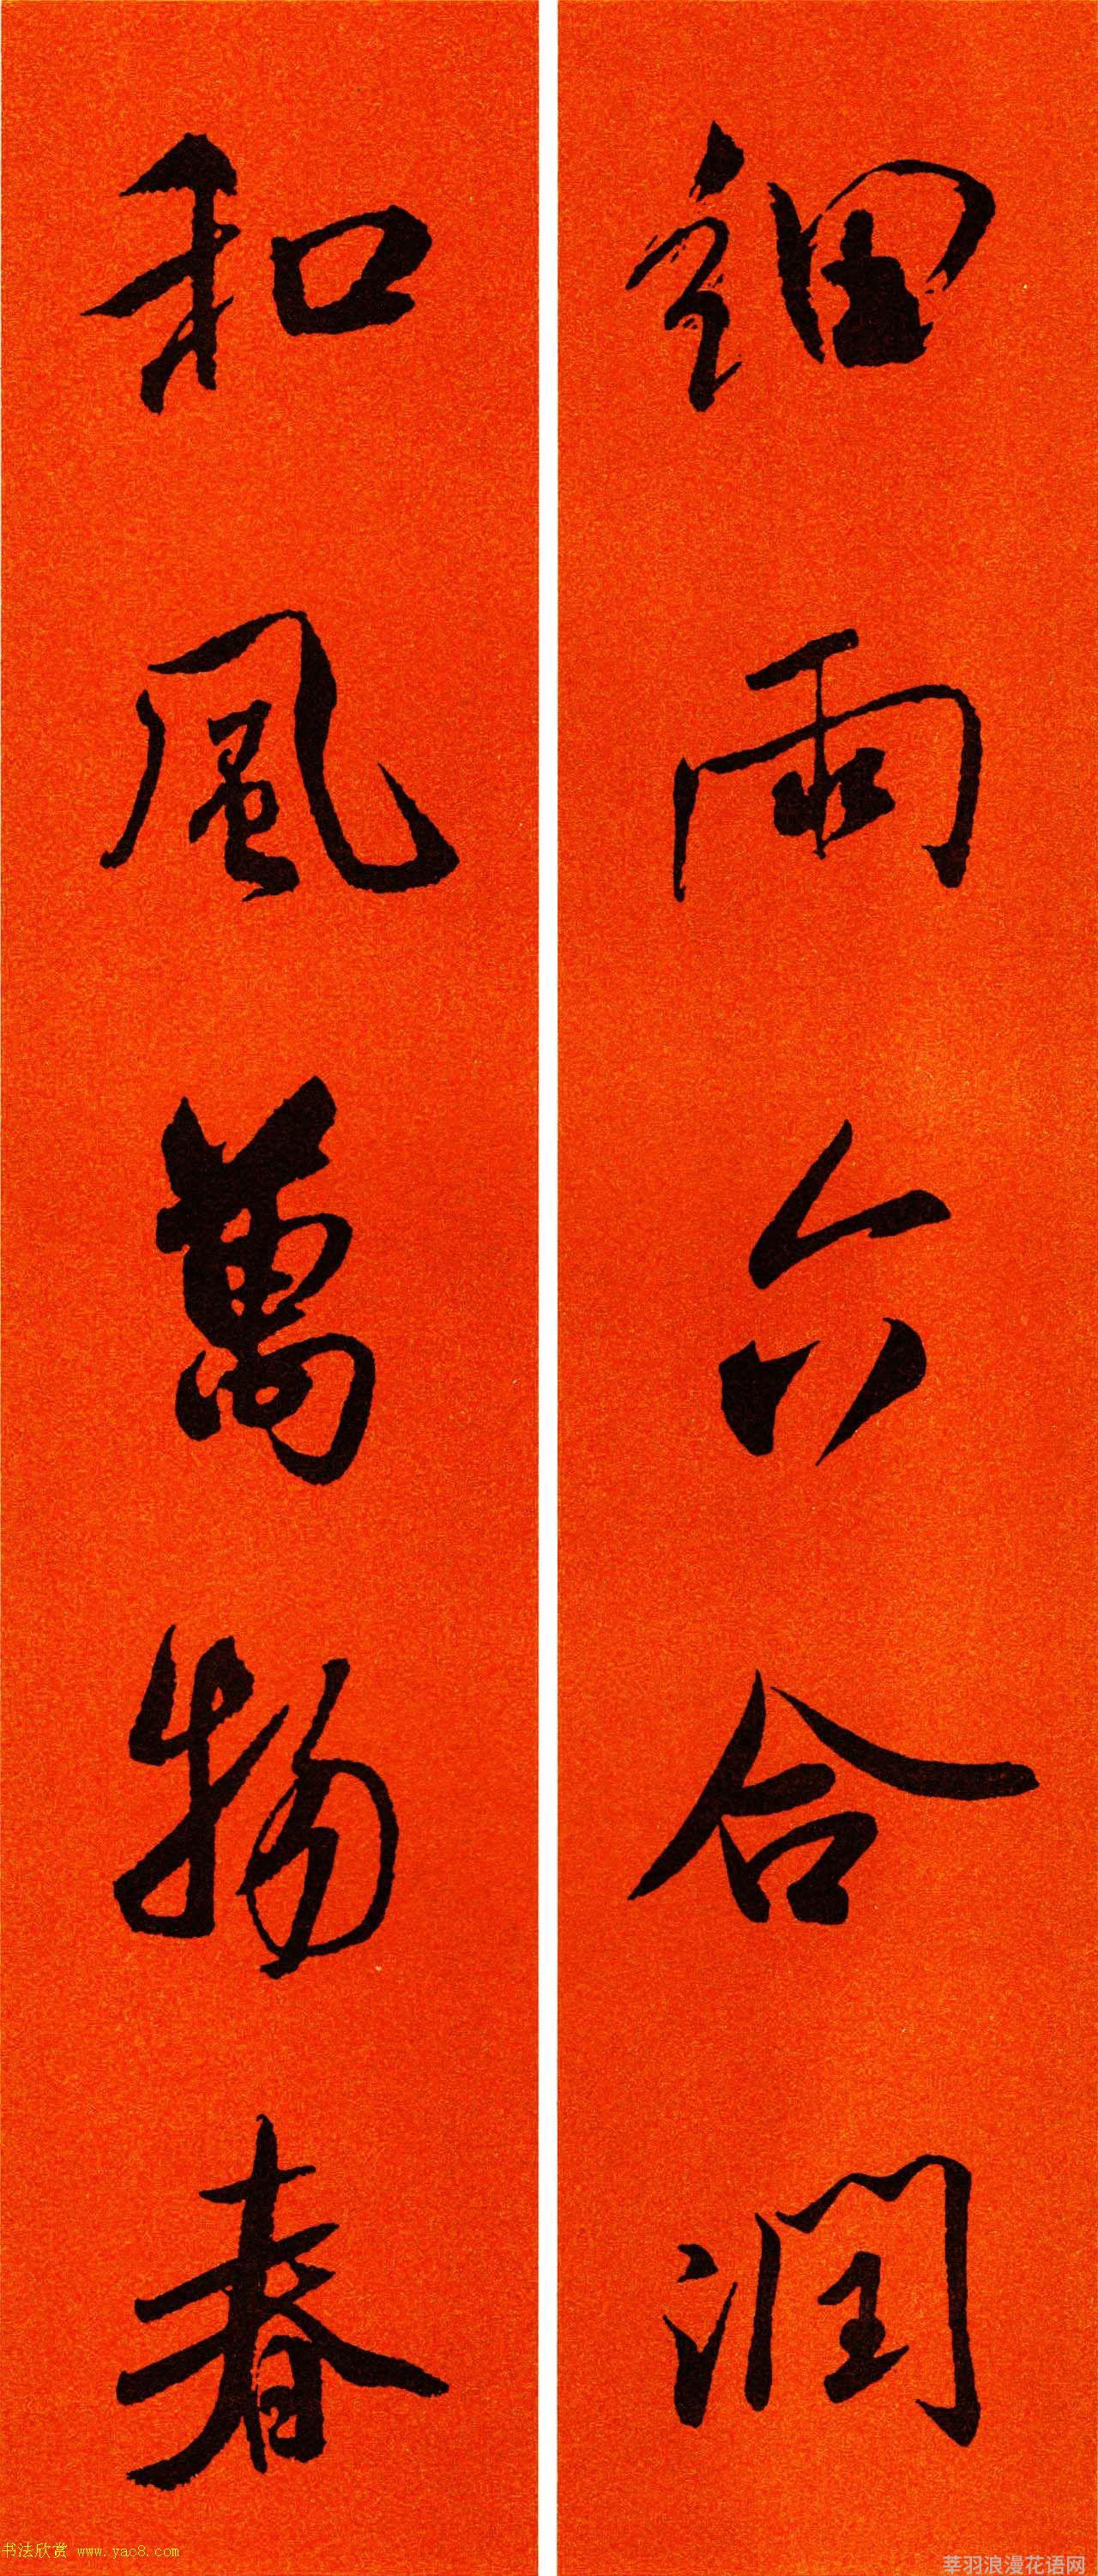 細雨六合潤
和風萬物春
书法欣赏 www.yac8.com
莘羽浪漫花语网